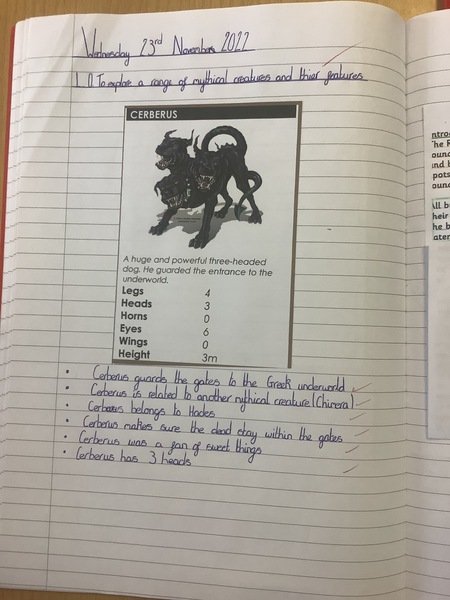 Wednesday 23rd November 2022
L.O To explore a range of mythical creatures and thier features
CERBERUS
A huge and powerful three-headed
dog. He guarded the entrance to the
underworld.
Legs 4
Heads 3
Horns 0
Eyes 6
Wings 0
Height 3m
• Cerberus guards the gates to the Greek underworld
• Cerberus is related to another mythical creature (Chimera)
• Cerberus belongs to Hades
• Cerberus makes sure the dead stay within the gates
• Cerberus was a fan of sweet things
• Cerberus has 3 heads